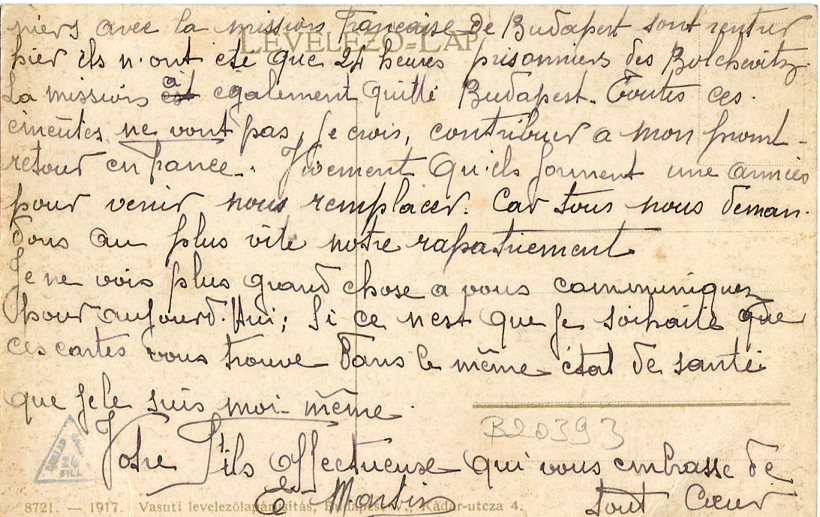 niers avec la mission française de Budapest sont rentrer
LEVELEZŐ-LAP
hier ils n'ont été que 24 heures prisonniers des Bolchevitz.
La mission a également quitté Budapest. Toutes ces
émeutes ne vont pas, je crois, contribuer a mon promt-
retour en france. Vivement qu'ils forment une armées
pour venir nous remplacer. Car tous nous deman-
dons au plus vite notre rapatriement
Je ne vois plus grand chose a vous communiquez
pour aujourd'hui; Si ce n'est que je souhaite que
ces cartes vous trouve dans le même état de santé
que je le suis moi-même.
B20393
Votre fils affectueuse qui vous embrasse de
E Martin tout Cœur
24
FILL
8721. — 1917. Vasuti levelezőlapárusitás, Budapest V., Kádár-utcza 4.